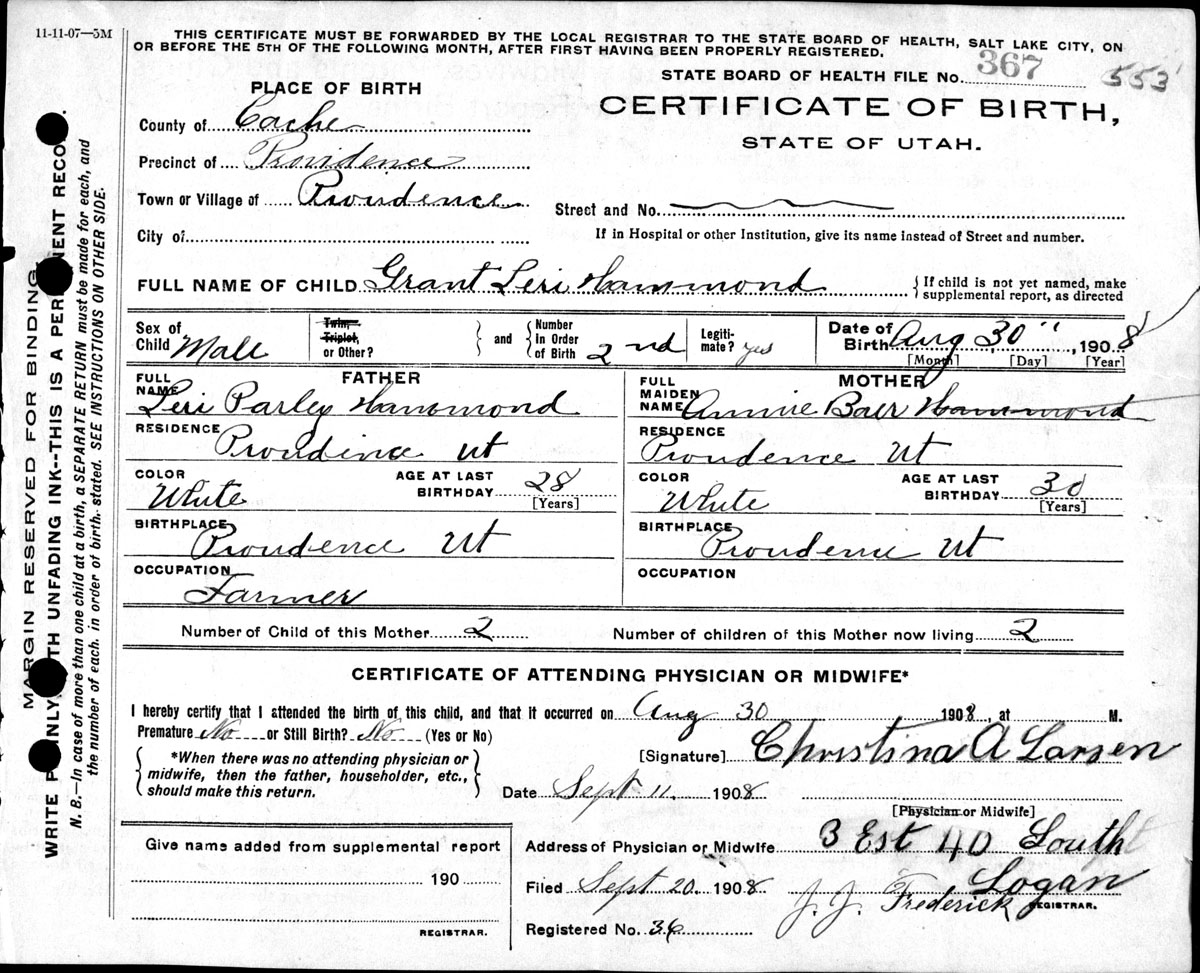 11-11-07—5M
THIS CERTIFICATE MUST BE FORWARDED BY THE LOCAL REGISTRAR TO THE STATE BOARD OF HEALTH, SALT LAKE CITY, ON
OR BEFORE THE 5TH OF THE FOLLOWING MONTH, AFTER FIRST HAVING BEEN PROPERLY REGISTERED.
STATE BOARD OF HEALTH FILE No. 367 553
PLACE OF BIRTH
CERTIFICATE OF BIRTH,
STATE OF UTAH.
County of Cache
Precinct of Providence
Town or Village of Providence
Street and No.
City of
If in Hospital or other Institution, give its name instead of Street and number.
FULL NAME OF CHILD Grant Leri Hammond { If child is not yet named, make supplemental report, as directed
Sex of Child Male Twin, Triplet, or Other? } and { Number In Order of Birth 2nd Legiti-mate? yes Date of Birth Aug 30", 1908
[Month] [Day] [Year]
FATHER
FULL NAME Leri Parley Hammond
RESIDENCE
Providince Ut
COLOR White AGE AT LAST BIRTHDAY 28 [Years]
BIRTHPLACE
Providence Ut
OCCUPATION
Farmer
MOTHER
FULL MAIDEN NAME Annie Baer Hammond
RESIDENCE
Providence Ut
COLOR White AGE AT LAST BIRTHDAY 30 [Years]
BIRTHPLACE
Providence Ut
OCCUPATION
Number of Child of this Mother 2 Number of children of this Mother now living 2
CERTIFICATE OF ATTENDING PHYSICIAN OR MIDWIFE*
I hereby certify that I attended the birth of this child, and that it occurred on Aug 30 1908, at M.
Premature No or Still Birth? No (Yes or No)
{ *When there was no attending physician or midwife, then the father, householder, etc., should make this return. }
[Signature] Christina A Larsen
Date Sept 11 1908
[Physician or Midwife]
Address of Physician or Midwife 3 Est 40 South
Logan
Filed Sept 20 1908 J. J. Frederick REGISTRAR.
Registered No. 36
Give name added from supplemental report
190
REGISTRAR.
MARGIN RESERVED FOR BINDING.
WRITE PLAINLY WITH UNFADING INK--THIS IS A PERMANENT RECORD.
N. B.—In case of more than one child at a birth, a SEPARATE RETURN must be made for each, and
the number of each, in order of birth, stated. SEE INSTRUCTIONS ON OTHER SIDE.